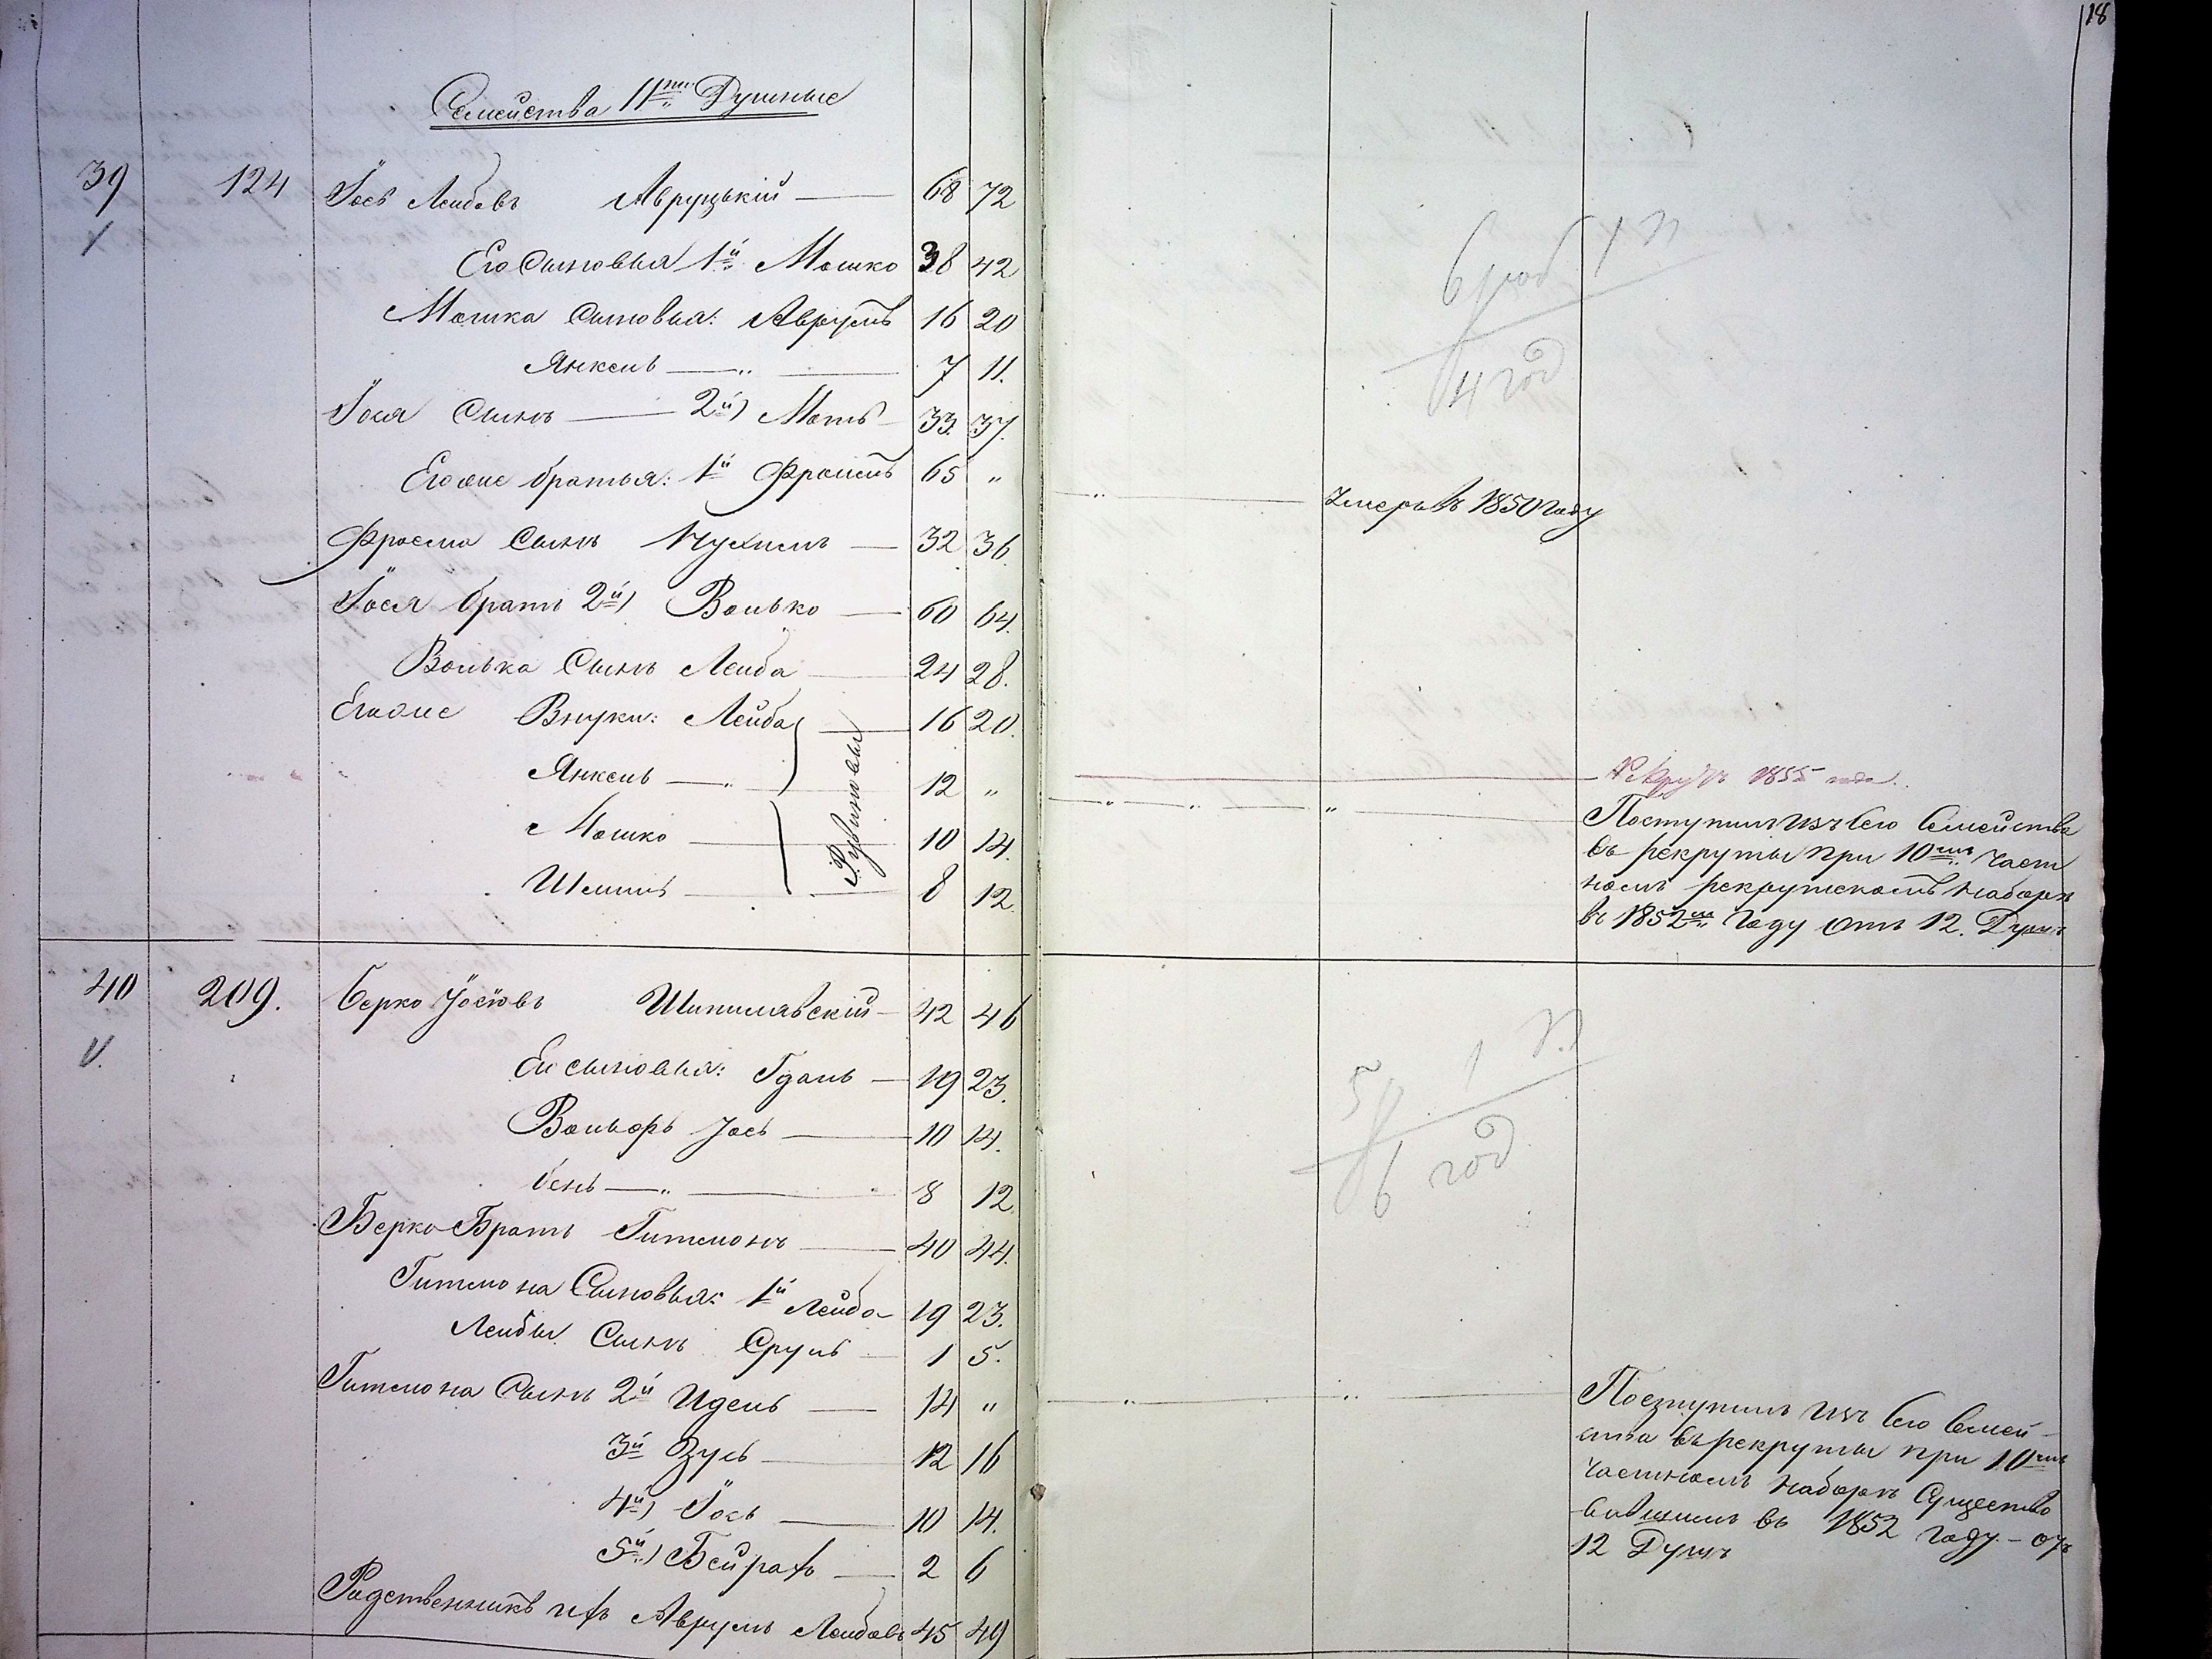 18
Семейства 11ти Душные
39 124 Іось Лейбовъ Авруцький 68 72
Его Сыновья 1й Мошко 38 42
Мошка Сыновья: Аврумъ 16 20
Янкель — „ — 7 11.
Іося Сынъ — 2й) Моть 33. 37.
Его же братья: 1й Фроимъ 65 „ — „ — Умеръ въ 1850 году
Фроима Сынъ Нухимъ — 32 36.
Іося братъ 2й) Волько — 60 64.
Волька Сынъ Лейба 24 28.
Его же Внуки: Лейба 16 20.
Янкель — „ — 12 „ Рекрутъ 1855 года.
Мошко 10 14.
Шлиомъ 8 12.
Рувиновы
Поступилъ изъ Сего Семейства
въ рекруты при 10мъ част
номъ рекрутскомъ наборѣ
въ 1852м Году отъ 12. Душъ
6 роб 1 п
4 год
40 209. Берко Іосіовъ Шпилявскій — 42 46
Его сыновья: Гдаль — 19 23.
Вольфръ Іось — 10 14.
бень — „ — 8 12.
Берко Братъ Гитмонъ — 40 44.
Гитмона Сыновья: 1й Лейба — 19 23.
Лейбы Сынъ Сруль 1 5.
Гитмона Сынъ 2й Идель — 14 „
3й Зусь 12 16
4й) Іось 10 14.
5й) Бейрахъ 2 6
Родственникъ ихъ Аврумъ Лейбовъ 45 49
5 р 1 п
6 год
Поступилъ изъ Сего Семей-
ства въ рекруты при 10мъ
частномъ наборѣ Существо
вавшимъ въ 1852 Году — отъ
12 Душъ